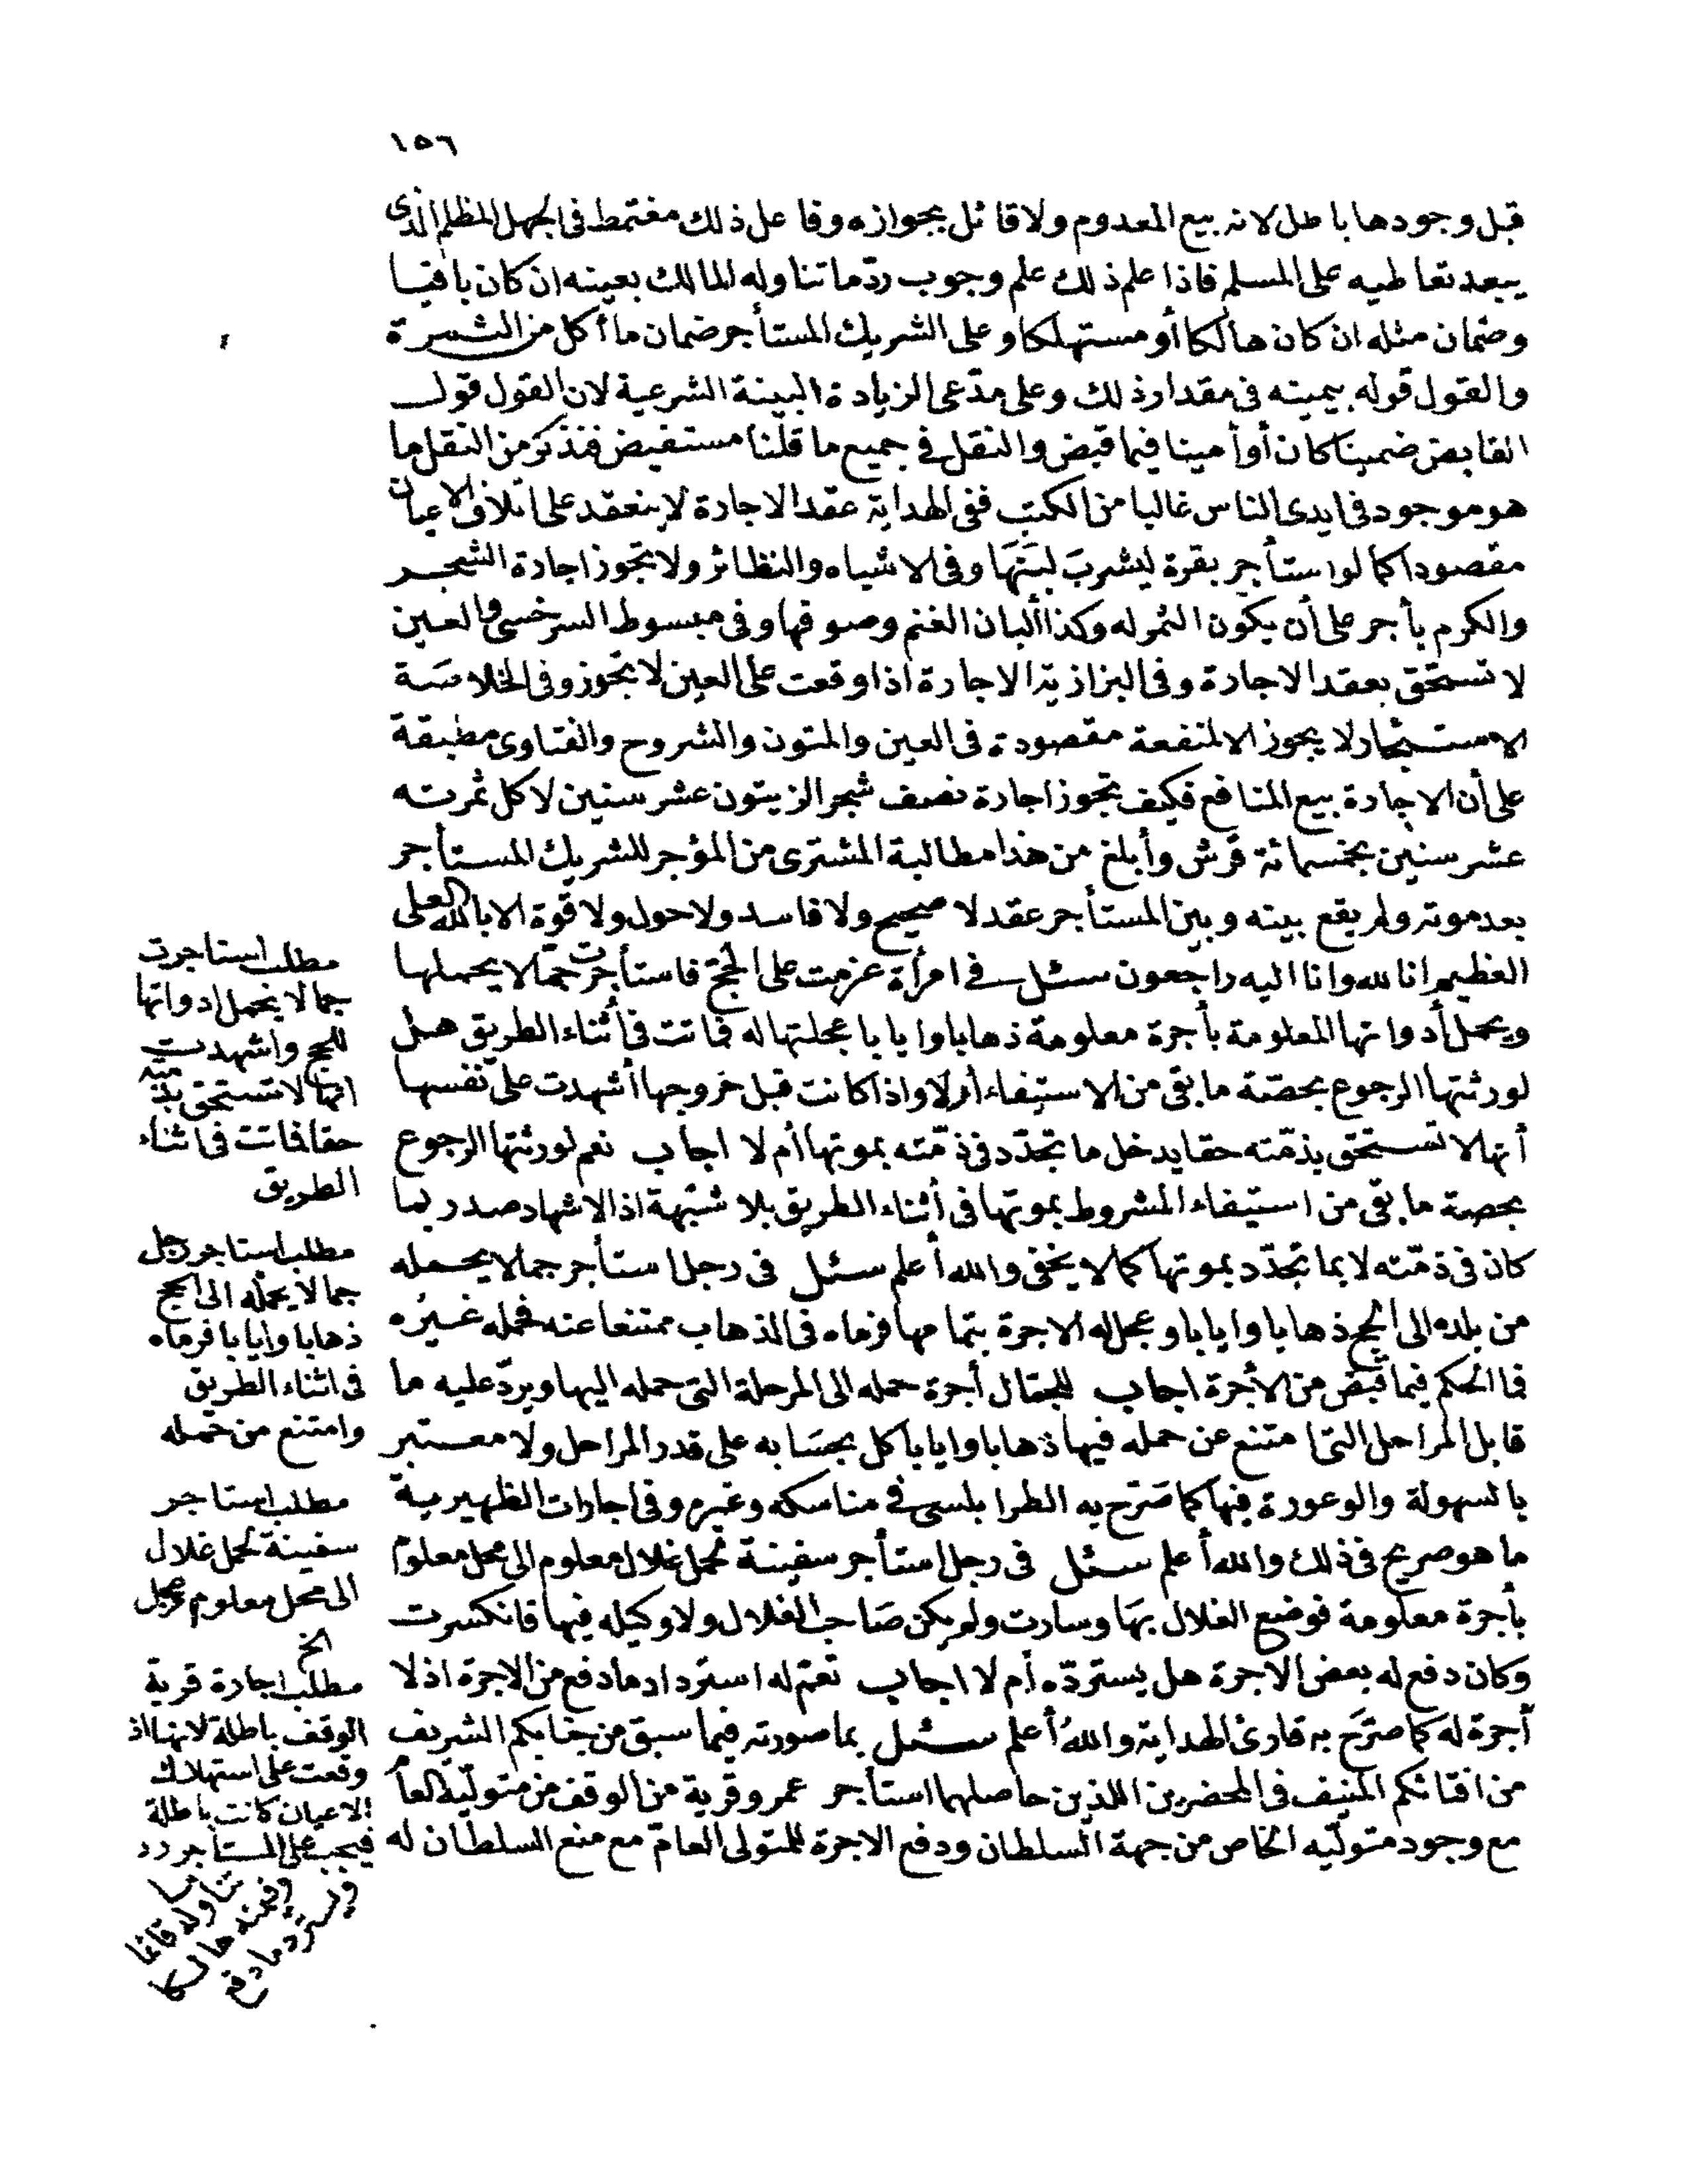 ١٥٦
قبل وجودها باطل لانه بيع المعدوم ولا قائل بجوازه وفاعل ذلك مغتمط فى الجهل المظلم الذى
يبعد تعاطيه على المسلم فاذا علم ذلك علم وجوب ردّ ما تناوله للمالك بعينه ان كان باقيا
وضمان مثله ان كان هالكا أو مستهلكا وعلى الشريك المستأجر ضمان ما أكل من الثمرة
والقول قوله بيمينه فى مقدار ذلك وعلى مدّعى الزيادة البينة الشرعية لان القول قول
القابض ضمينا كان أو أمينا فيما قبض والنقل فى جميع ما قلنا مستفيض فنذكر من النقل ما
هو موجود فى ايدى الناس غالبا من الكتب ففى الهداية عقد الاجارة لا ينعقد على اتلاف الاعيان
مقصودا كما لو استأجر بقرة ليشربَ لبنَهَا وفى الاشباه والنظائر ولا تجوز اجارة الشجر
والكرم بأجر على أن يكون الثمر له وكذا ألبان الغنم وصوفها وفى مبسوط السرخسى والعين
لا تستحق بعقد الاجارة وفى البزازية الاجارة اذا وقعت على العين لا تجوز وفى الخلاصَة
الاستئجار لا يجوز الا لمنفعة مقصودة فى العين والمتون والشروح والفتاوى مطبقة
على أن الاجارة بيع المنافع فكيف تجوز اجارة نصف شجر الزيتون عشر سنين لاكل ثمرته
عشر سنين بخمسمائة قرش وأبلغ من هذا مطالبة المشترى من المؤجر للشريك المستأجر
بعد موته ولم يقع بينه وبين المستأجر عقد لا صحيح ولا فاسد ولا حول ولا قوة الا بالله العلى
العظيم انا لله وانا اليه راجعون سئل فى امرأة عزمت على الحجّ فاستأجرت جمّالا يحملها
ويحمل أدواتها المعلومة بأجرة معلومة ذهابا وايابا عجلتها له فماتت فى أثناء الطريق هل
لورثتها الرجوع بحصّة ما بقى من الاستيفاء أم لا واذا كانت قبل خروجها أشهدت على نفسها
أنها لا تستحق بذمّته حقا يدخل ما تجدّد فى ذمّته بموتها أم لا اجاب نعم لورثتها الرجوع
بحصة ما بقى من استيفاء المشروط بموتها فى أثناء الطريق بلا شبهة اذ الاشهاد صدر بما
كان فى ذمّته لا بما تجدّد بموتها كما لا يخفى والله أعلم سئل فى رجل استأجر جمالا يحمله
من بلده الى الحج ذهابا وايابا وعجل له الاجرة بتمامها فرماه فى الذهاب ممتنعا عنه فحمله غيرُه
فما الحكم فيما قبض من الأجرة اجاب للجمّال أجرة حمله الى المرحلة التى حمله اليها ويردّ عليه ما
قابل المراحل التى امتنع عن حمله فيها ذهابا وايابا كل بحسَابه على قدر المراحل ولا معتبر
بالسهولة والوعورة فيها كما صَرّح به الطرابلسى فى مناسكه وغيره وفى اجارات الظهيرية
ما هو صريح فى ذلك والله أعلم سئل فى رجل استأجر سفينة لحمل غلال معلوم الى محل معلوم
بأجرة معلومة فوضع الغلال بهَا وسارت ولم يكن صَاحب الغلال ولا وكيله فيها فانكسرت
وكان دفع له بعض الاجرة هل يستردّه أم لا اجاب نعم له استرداد ما دفع من الاجرة اذ لا
أجرة له كما صَرّحَ به قارئ الهداية واللهُ أعلم سئل بما صورته فيما سبق من جنابكم الشريف
من افتائكم المنيف فى المحضرين اللذين حاصلهما استأجر عمرو قرية من الوقف من متوليّه العام
مع وجود متوليّه الخاص من جهة السلطان ودفع الاجرة للمتولى العامّ مع منع السلطان له
مطلب استاجرت
جمالا يحمل ادواتها
للحج واشهدت
انها لا تستحق بذمته
حقا فماتت فى اثناء
الطريق
مطلب استاجر رجل
جمالا يحمله الى الحج
ذهابا وايابا فرماه
فى اثناء الطريق
وامتنع من حمله
مطلب استاجر
سفينة لحمل غلال
الى محل معلوم عجل
الخ
مطلب اجارة قرية
الوقف باطلة لانها اذ
وقعت على استهلاك
الاعيان كانت باطلة
فيجب على المستأجر رد
ما تناوله قائما
هالكا
ويسترد ما دفع